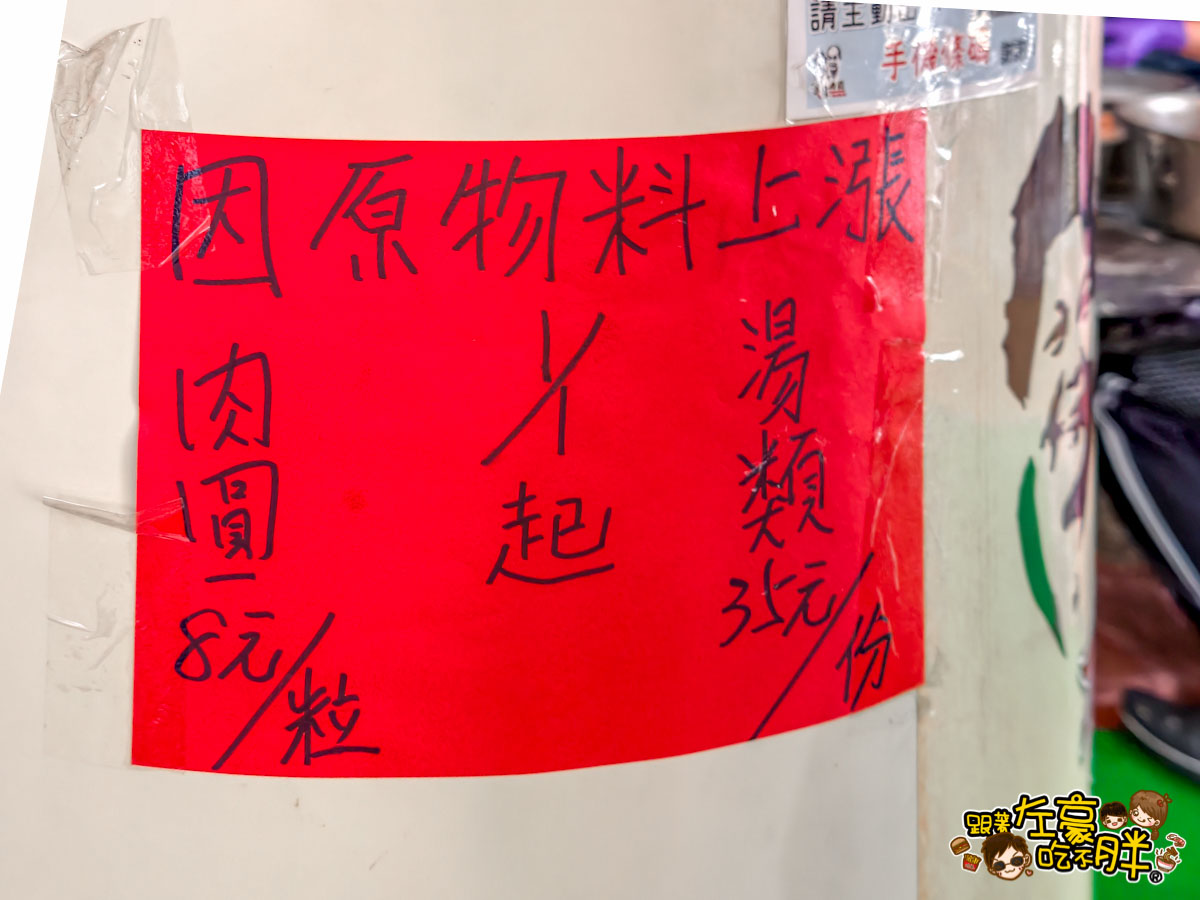 請主動出
手機條碼
因原物料上漲
肉圓
一
8元/粒
1/1
起
湯類
35元/份
跟著左豪
吃不胖®